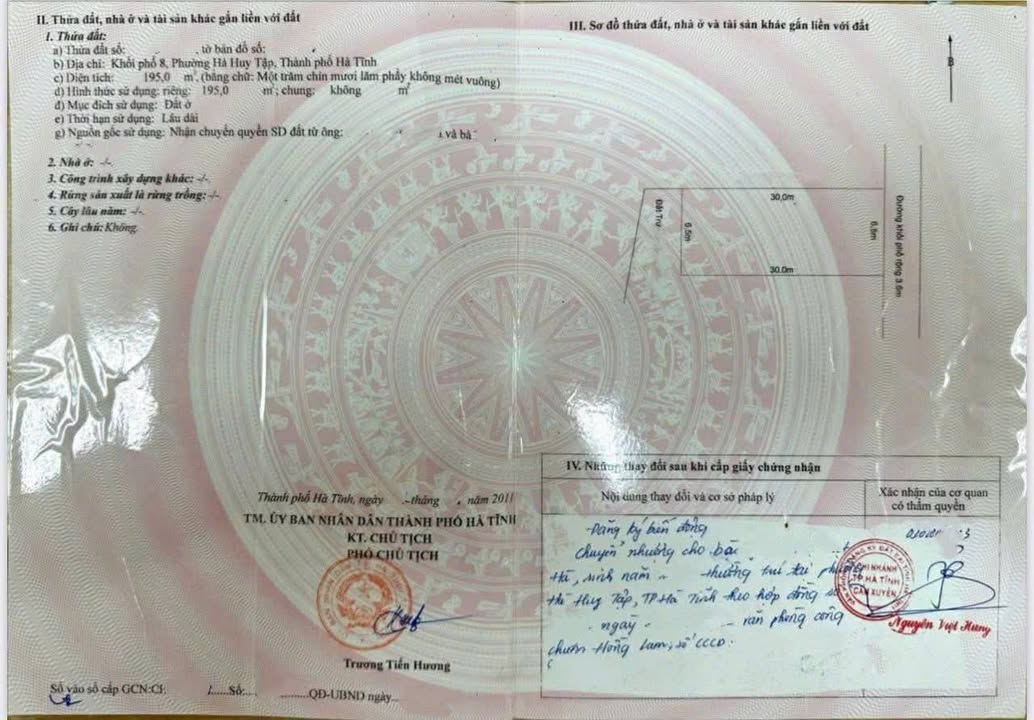 II. Thửa đất, nhà ở và tài sản khác gắn liền với đất
1. Thửa đất:
a) Thửa đất số: , tờ bản đồ số:
b) Địa chỉ: Khối phố 8, Phường Hà Huy Tập, Thành phố Hà Tĩnh
c) Diện tích: 195,0 m², (bằng chữ: Một trăm chín mươi lăm phẩy không mét vuông)
d) Hình thức sử dụng: riêng: 195,0 m²; chung: không m²
đ) Mục đích sử dụng: Đất ở
e) Thời hạn sử dụng: Lâu dài
g) Nguồn gốc sử dụng: Nhận chuyển quyền SD đất từ ông: và bà
2. Nhà ở: -/-
3. Công trình xây dựng khác: -/-
4. Rừng sản xuất là rừng trồng: -/-
5. Cây lâu năm: -/-
6. Ghi chú: Không.
Thành phố Hà Tĩnh, ngày tháng năm 2011
TM. ỦY BAN NHÂN DÂN THÀNH PHỐ HÀ TĨNH
KT. CHỦ TỊCH
PHÓ CHỦ TỊCH
Trương Tiến Hương
Số vào sổ cấp GCN:CH Số: QĐ-UBND ngày
III. Sơ đồ thửa đất, nhà ở và tài sản khác gắn liền với đất
B
30,0m
Đất Trụ
6,5m
6,5m
Đường khối phố rộng 3.6m
30.0m
IV. Những thay đổi sau khi cấp giấy chứng nhận
Nội dung thay đổi và cơ sở pháp lý
Xác nhận của cơ quan
có thẩm quyền
- Đăng ký biến động
chuyển nhượng cho bà
Hà, sinh năm thường trú tại phường
Hà Huy Tập, TP Hà Tĩnh theo hợp đồng số
ngày văn phòng công
chứng Hồng Lam, số CCCD:
CHI NHÁNH
TP HÀ TĨNH
CẨM XUYÊN
Nguyễn Việt Hùng